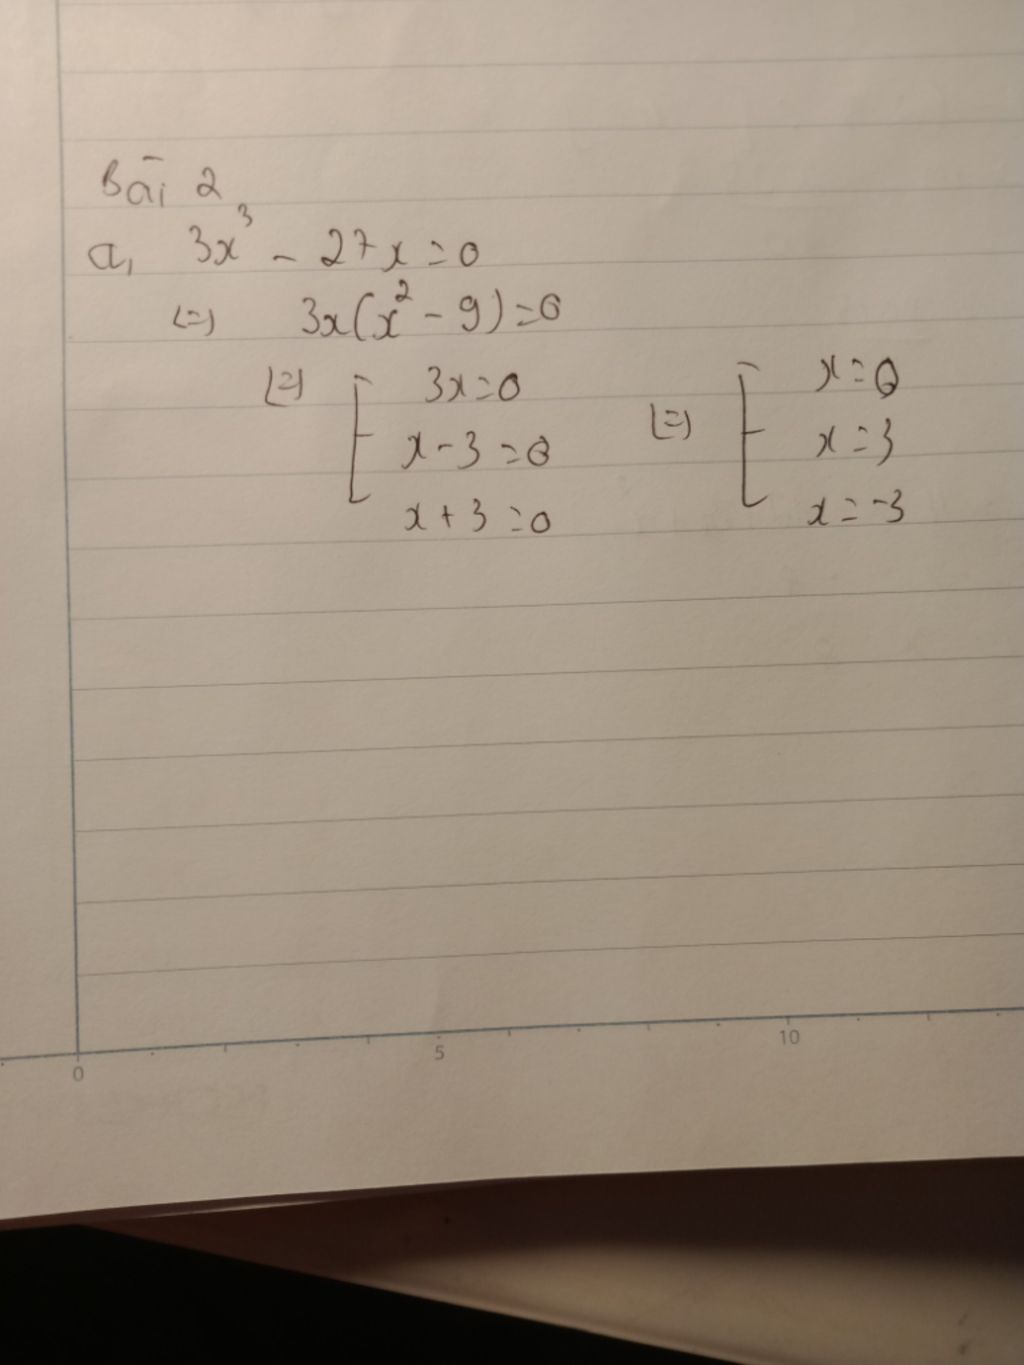 Bài 2
a, 3x³ - 27x = 0
(=) 3x(x² - 9) = 0
(=) [ 3x = 0 (=) [ x = 0
x - 3 = 0 x = 3
x + 3 = 0 x = -3
0 5 10